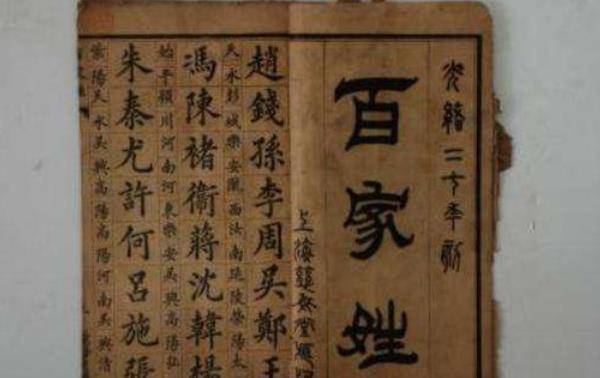 光緒二十年新
百家姓
上海
趙錢孫李周吳鄭王
天水彭城樂安隴西汝南延陵滎陽太
馮陳褚衛蔣沈韓楊
始平穎川河南河東樂安吳興高陽弘
朱秦尤許何呂施張
紫陽天水吳興高陽河南吳興清